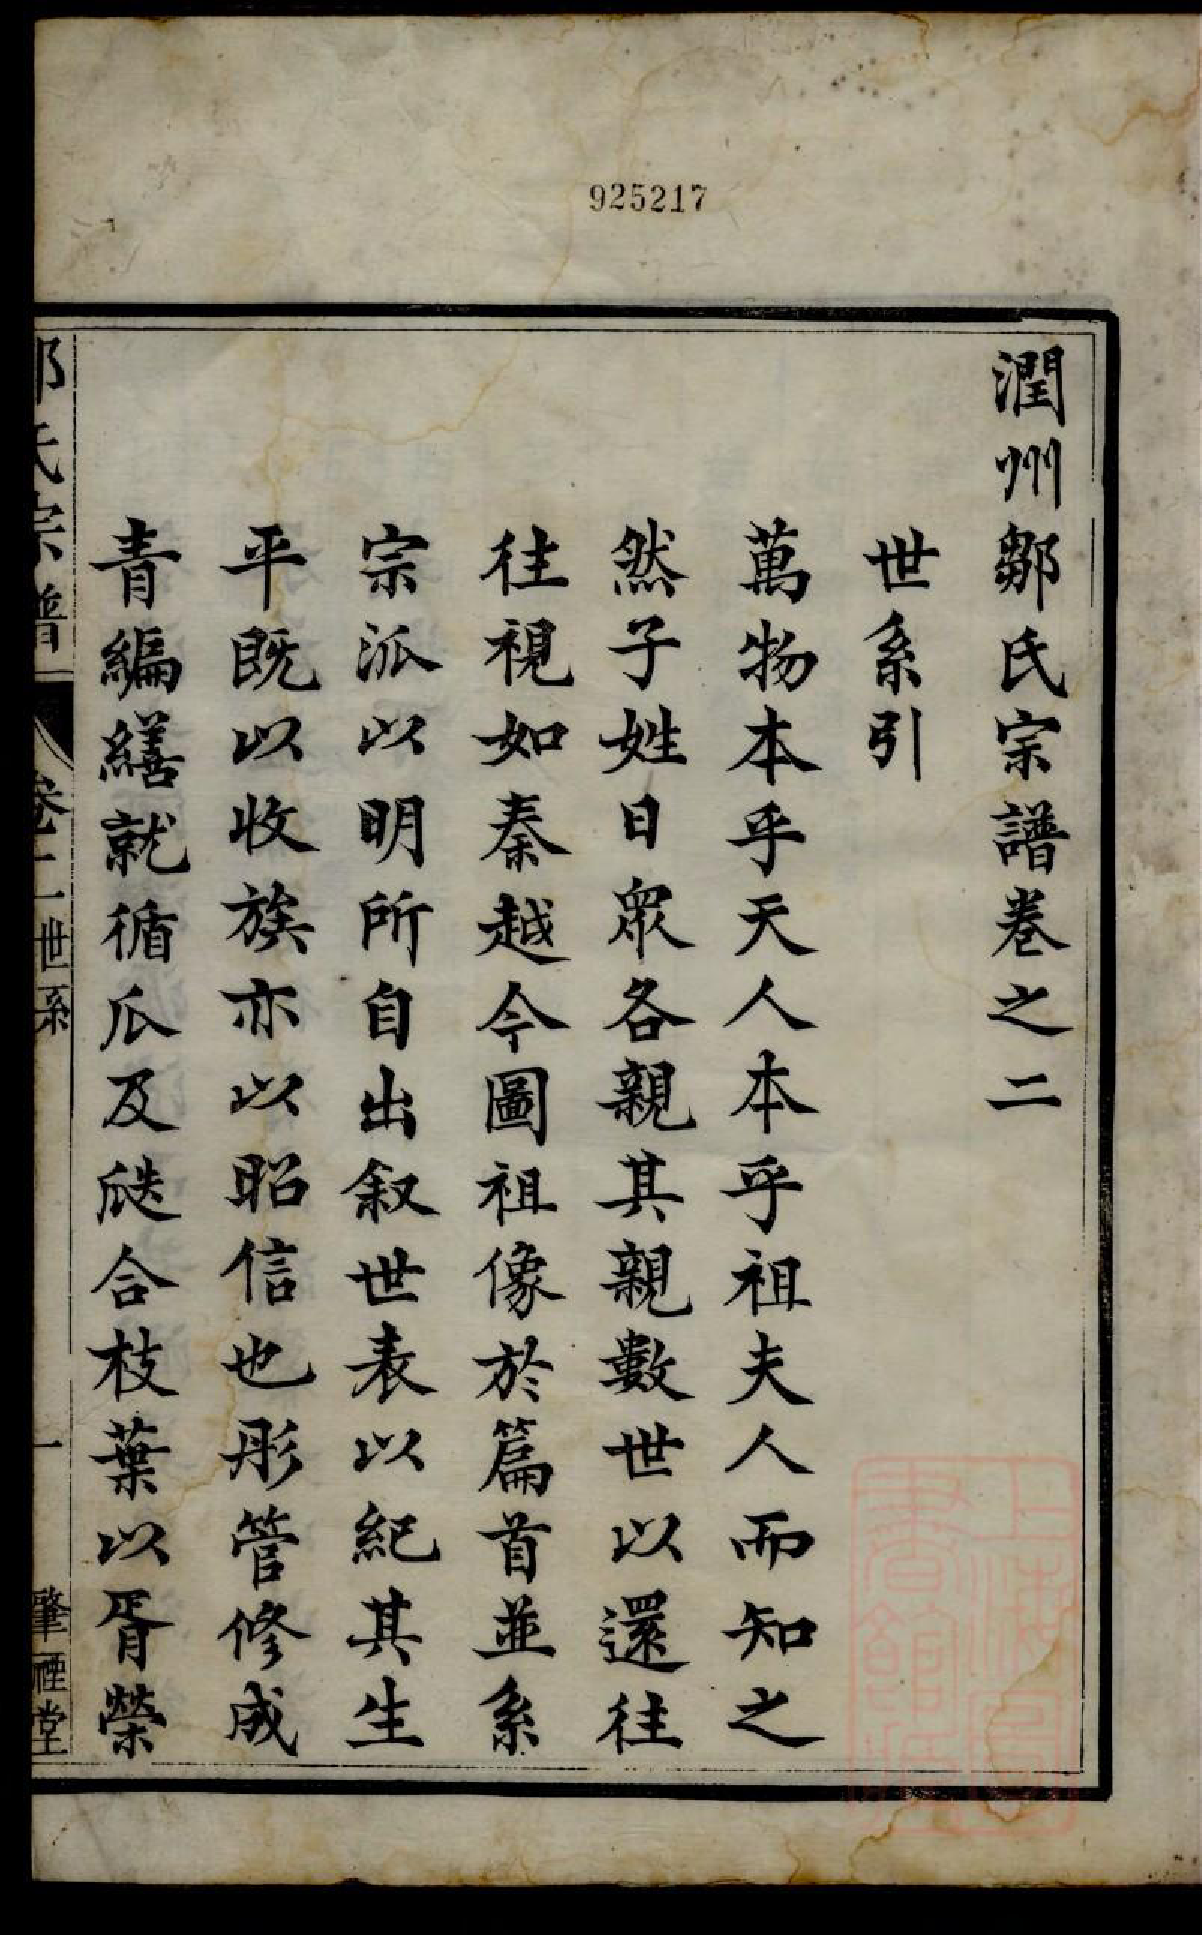 925217
潤州鄒氏宗譜卷之二
世系引
萬物本乎天人本乎祖夫人而知之
然子姓日眾各親其親數世以還往
往視如秦越今圖祖像於篇首並系
宗派以明所自出叙世表以紀其生
平既以收族亦以昭信也彤管修成
青編繕就循瓜及瓞合枝葉以胥榮
鄒氏宗譜
卷二 世系
一
肇禋堂
上海圖書館藏